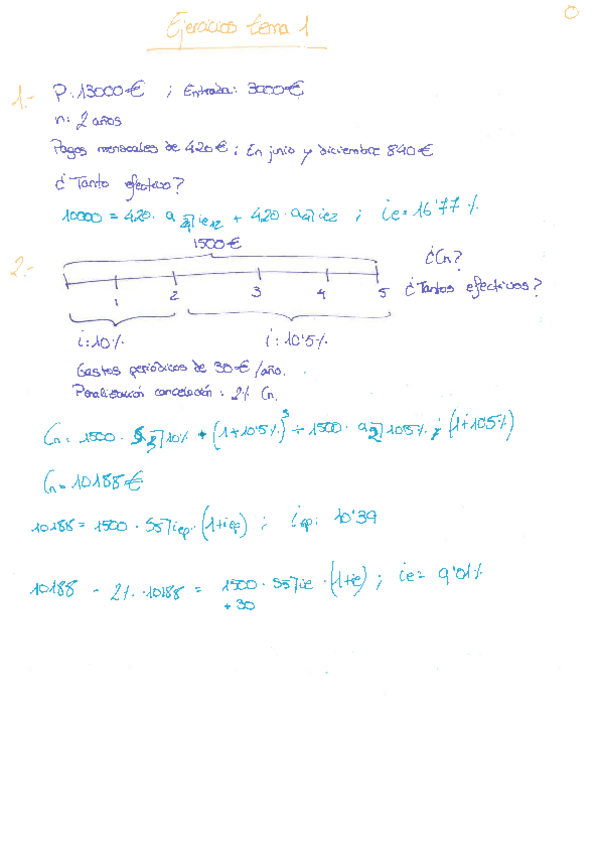 Ejercicios tema 1
0
1.- P: 13000€ ; Entrada: 3000€
n: 2 años
Pagos mensuales de 420€; En junio y diciembre 840€
¿Tanto efectivo?
10000 = 420 · a 24⌉ie12 + 420 · a4⌉ie2 ; ie = 16'77 %
2.- 1500€
¿Cn?
1 2 3 4 5 ¿Tantos efectivos?
i: 10% i: 10'5%
Gastos periódicos de 30€/año.
Penalización cancelación: 2% Cn.
Cn = 1500 · S2⌉10% · (1+10'5%)³ + 1500 · 10'5% ; (1+10'5%)
Cn = 10188€
10188 = 1500 · S5⌉iep · (1+iep) ; iep: 10'39
10188 - 2% · 10188 = 1500 · S5⌉ie · (1+ie) ; ie = 9'01%
+ 30